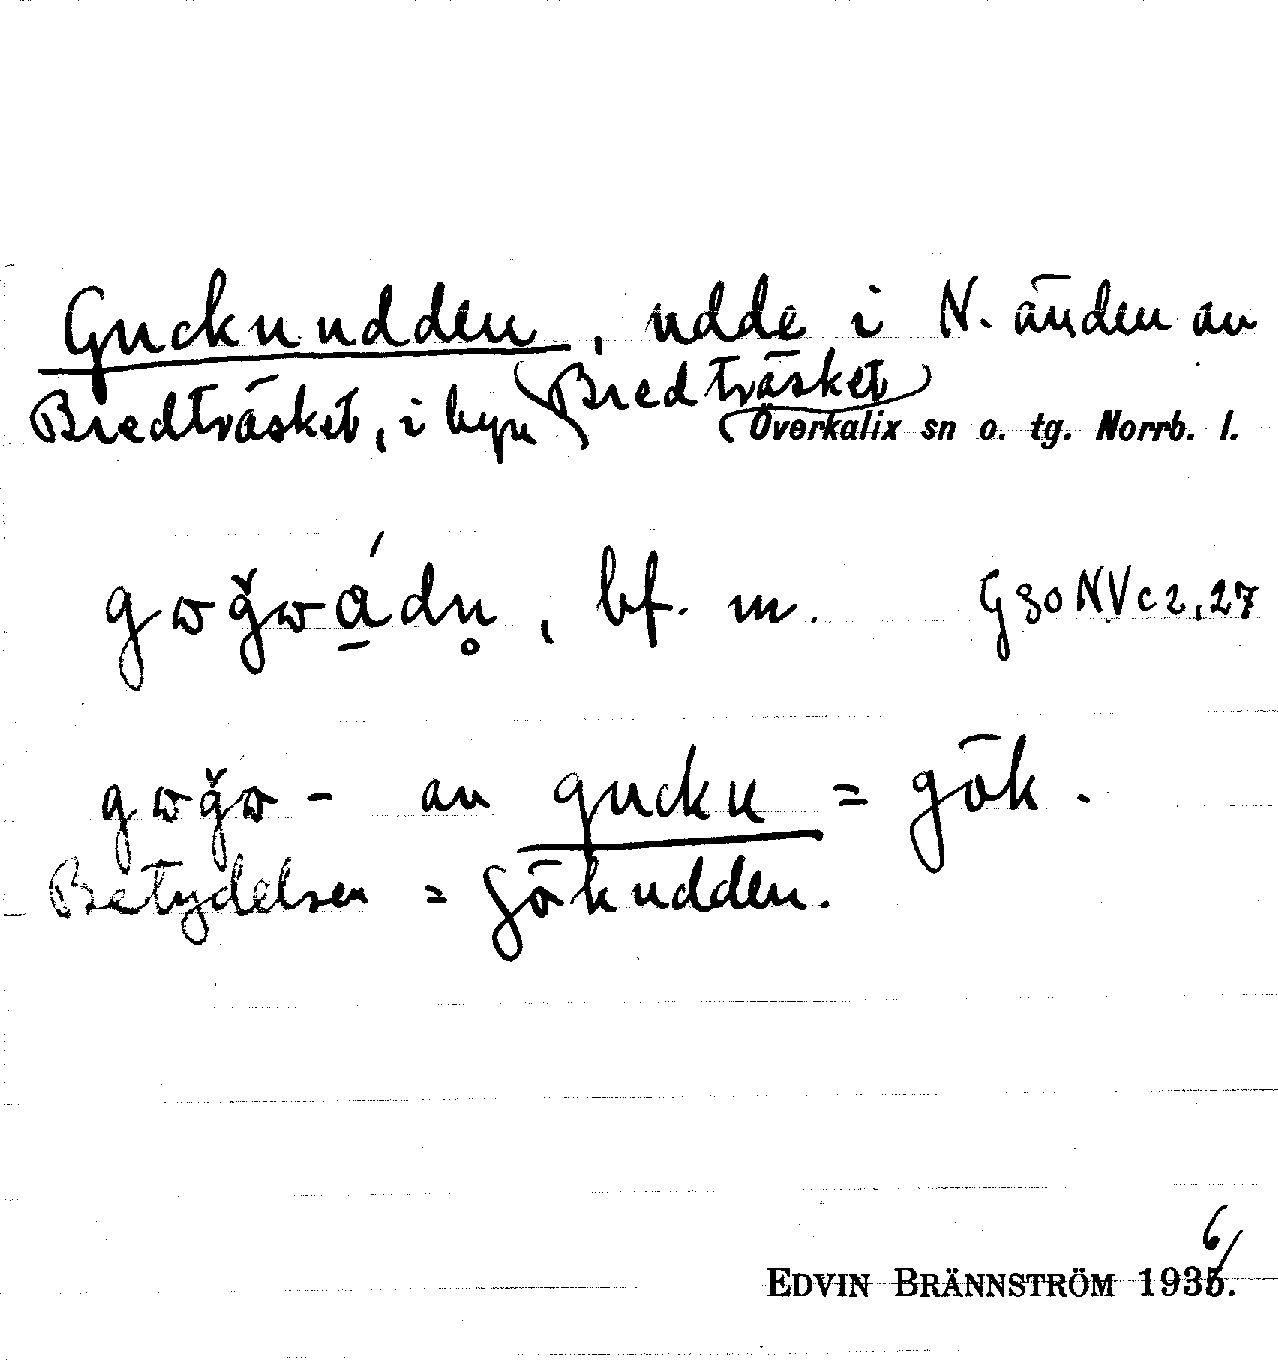 Guckuudden, udde i N. änden av
Bredträsket, i byn Bredträsket
Överkalix sn o. tg. Norrb. l.
bf. m. G30NVc2,27
av gucku = gök.
Betydelsen = gökudden.
EDVIN BRÄNNSTRÖM 1936.